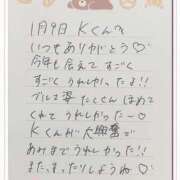 1月9日 Kくんへ
いつもありがとう♡
今年も会えて すごく
すごく うれしかったよ!!
ブルマ姿 たくさん ほめて
くれて うれしかったー♡
Kくんが大興奮で
あみも うれしかった!!
また まったりしようね♡